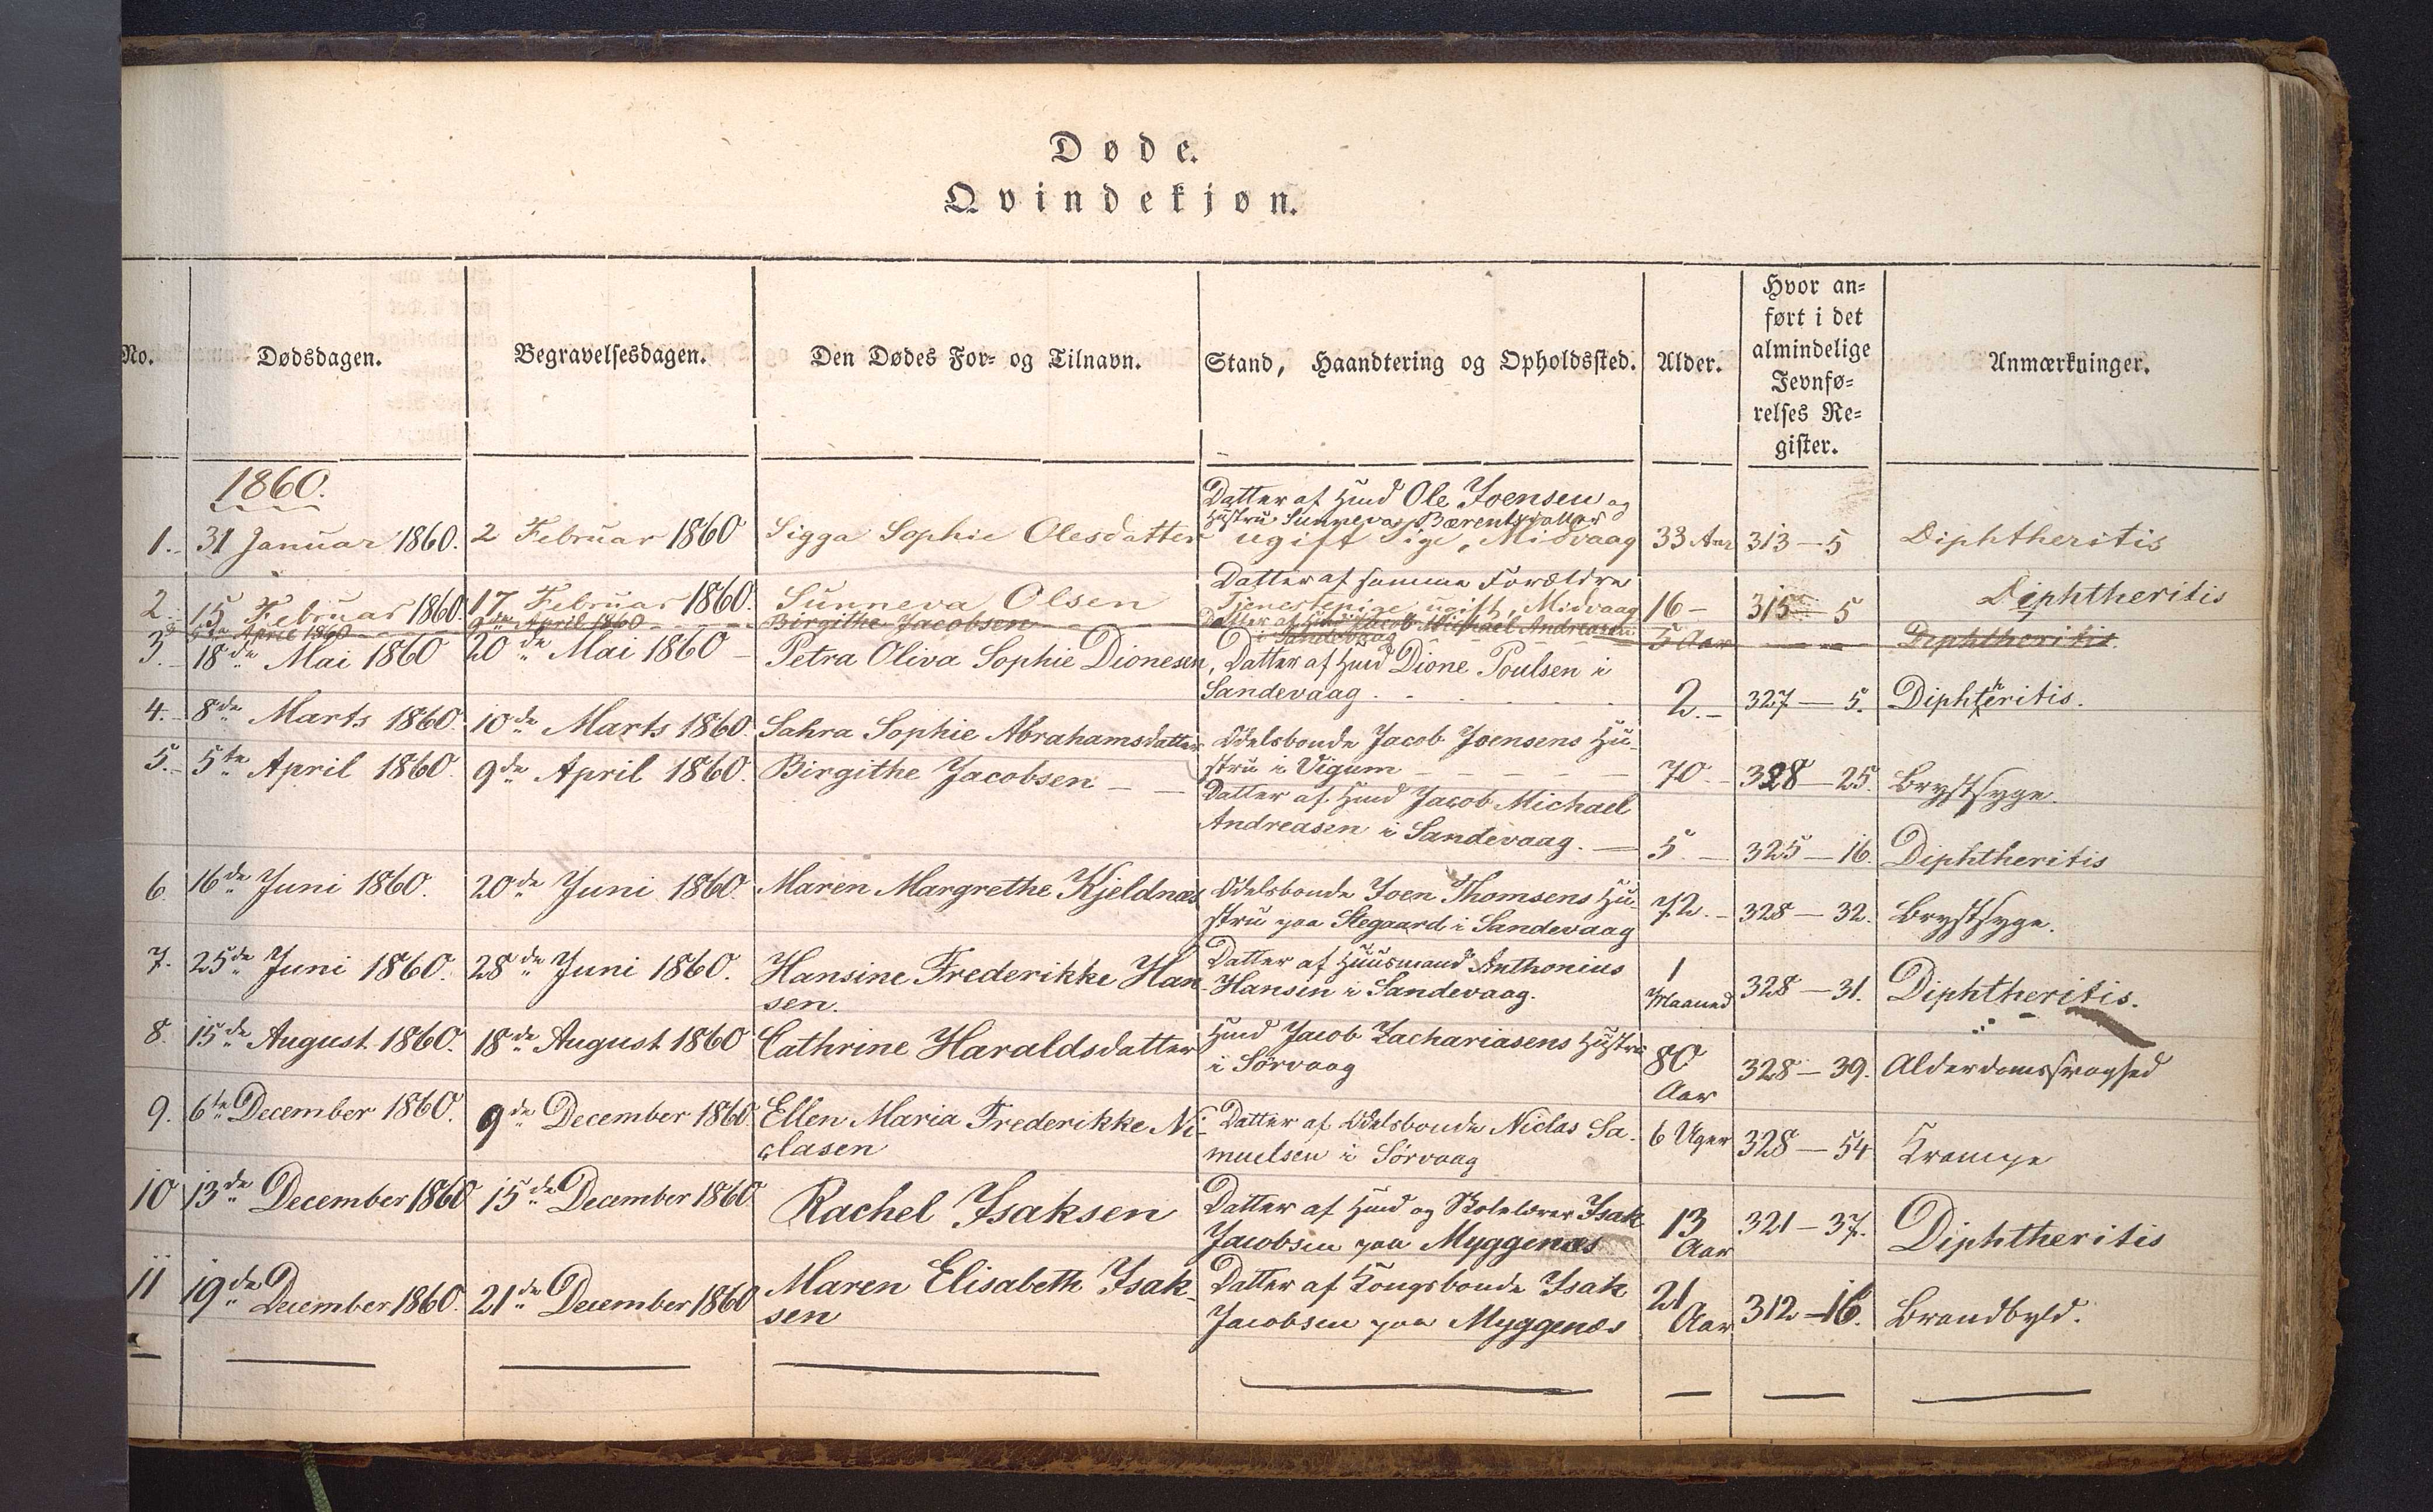 Døde.
Qvindekjøn.
No. Dødsdagen. Begravelsesdagen. Den Dødes For- og Tilnavn. Stand, Haandtering og Opholdssted. Alder. Hvor an-
ført i det
almindelige
Jevnfø-
relses Re-
gister. Anmærkninger.
1860.
Datter af Huusmd Ole Joensen og
Hustru Sunneva Bærentsdatter
1. 31 Januar 1860. 2 Februar 1860 Sigga Sophie Olesdatter ugift Pige, Midvaag 33 Aar 313-5 Diphtheritis
Datter af samme Forældre
2. 15 Februar 1860 17 Februar 1860. Sunneva Olsen Tjenestepige, ugift, Midvaag 16- 315-5 Diphtheritis
5te April 1860 9de April 1860 Birgithe Jacobsen Datter af Huusmd Jacob Michael Andreasen
i Sandevaag 5 Aar Diphtheritis.
3. 18de Mai 1860 20de Mai 1860 - Petra Oliva Sophie Dionesen, Datter af Huusmd Dione Poulsen i
Sandevaag. 2.- 327-5. Diphtheritis.
4. 8de Marts 1860. 10de Marts 1860. Sahra Sophie Abrahamsdatter Odelsbonde Jacob Joensens Hu-
stru i Vigum 70.- 328-25. Brystsyge.
5. 5te April 1860. 9de April 1860. Birgithe Jacobsen - - Datter af Huusmd Jacob Michael
Andreasen i Sandevaag. - 5.- 325-16. Diphtheritis
6. 16de Juni 1860. 20de Juni 1860. Maren Margrethe Kjeldnæs Odelsbonde Joen Thomsens Hu-
stru paa Stegaard i Sandevaag 72.- 328-32. Brystsyge.
7. 25de Juni 1860. 28de Juni 1860. Hansine Frederikke Han-
sen. Datter af Huusmand Anthonius
Hansen i Sandevaag. 1
Maaned 328-31. Diphtheritis.
8. 15de August 1860. 18de August 1860 Cathrine Haraldsdatter Huusmd Jacob Zachariasens Hustru
i Sørvaag 80
Aar 328-39. Alderdomssvaghed
9. 6te December 1860. 9de December 1860 Ellen Maria Frederikke Ni-
clasen Datter af Odelsbonde Niclas Sa-
muelsen i Sørvaag 6 Uger 328-54 Krampe
10 13de December 1860 15de December 1860. Rachel Isaksen Datter af Huusmd og Skolelærer Isak
Jacobsen paa Myggenæs 13
Aar 321-37. Diphtheritis
11 19de December 1860. 21de December 1860 Maren Elisabeth Isak-
sen Datter af Kongsbonde Isak
Jacobsen paa Myggenæs 21
Aar 312-16. Brandbyld.